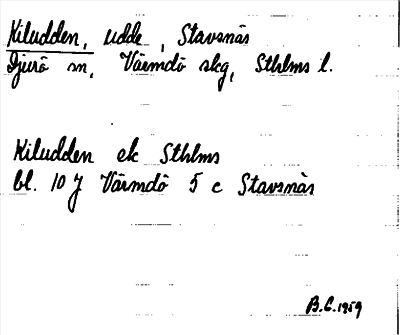 Kiludden, udde, Stavsnäs
Djurö sn, Värmdö skg, Sthlms l.
Kiludden ek Sthlms
bl. 10 J Värmdö 5 c Stavsnäs
B.C. 1959